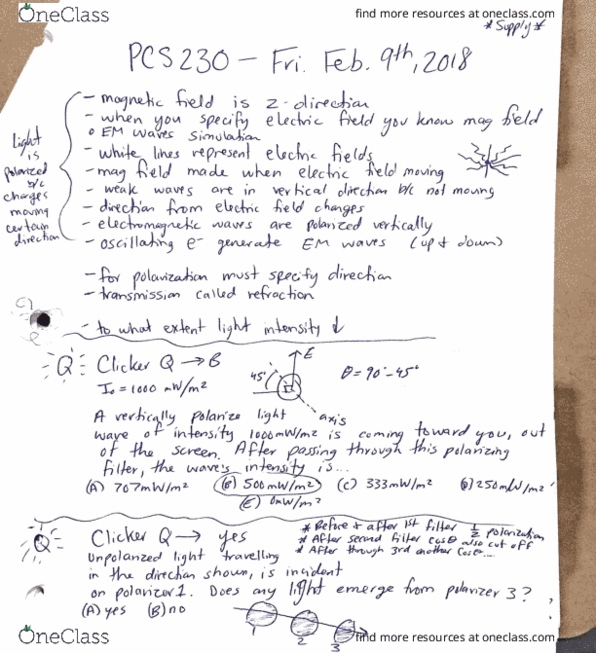 OneClass
find more resources at oneclass.com
* Supply *
PCS 230 - Fri. Feb. 9th, 2018
- magnetic field is z-direction
- when you specify electric field you know mag field
o EM waves simulation
- white lines represent electric fields
- mag field made when electric field moving
- weak waves are in vertical direction b/c not moving
- direction from electric field changes
- electromagnetic waves are polarized vertically
- oscillating e- generate EM waves (up & down)
light
is
polarized
b/c
charges
moving
certain
direction
- for polarization must specify direction
- transmission called refraction
- to what extent light intensity ↓
Q: Clicker Q → B
I₀ = 1000 mW/m²
45°
E
θ = 90° - 45°
axis
A vertically polarize light
wave of intensity 1000mW/m2 is coming toward you, out
of the screen. After passing through this polarizing
filter, the wave's intensity is...
(A) 707mW/m² (B) 500mW/m² (C) 333mW/m² (D) 250mW/m²
(E) 0mW/m²
Q: Clicker Q → yes
* Before & after 1st filter 1/2 polarization
* After second filter cosθ also cut off
* After through 3rd another cosθ...
Unpolarized light travelling
in the direction shown, is incident
on polarizer 1. Does any light emerge from polarizer 3?
(A) yes (B) no
1
2
3
OneClass
find more resources at oneclass.com